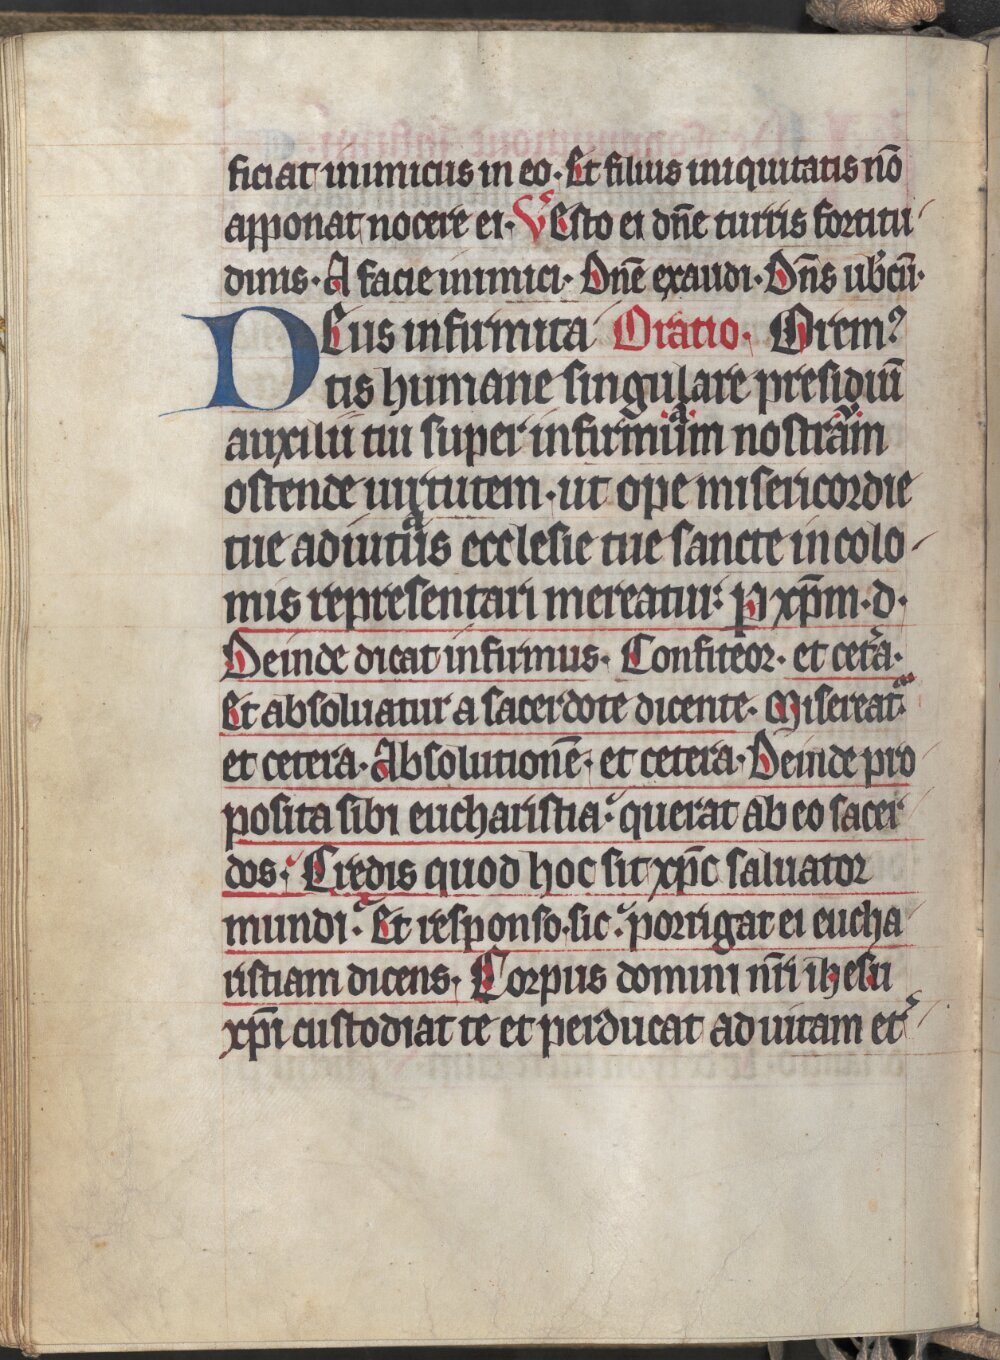 ficiat inimicus in eo. Et filius iniquitatis nō
apponat nocere ei. V Esto ei dn̄e turris fortitu
dinis. A facie inimici. Dn̄e exaudi. Dn̄s ub'cū.
DEus infirmita Oratio. Orem9
tis humane singulare presidiū
auxilii tui super infirmum am nostram
ostende uirtutem. ut ope misericordie
tue adiutus a ecclesie tue sancte incolo
mis representari mereatur. P xp̄m. d.
Deinde dicat infirmus. Confiteor. et cet'a.
Et absoluatur a sacerdote dicente. Misereat'
et cetera. Absolutionē. et cetera. Deinde pro
posita sibi eucharistia. querat ab eo sacer
dos. Credis quod hoc sit xp̄c saluator
mundi. Et responso. sic. porrigat ei eucha
ristiam dicens. Corpus domini nr̄i ihesu
xp̄i custodiat te et perducat ad uitam et'